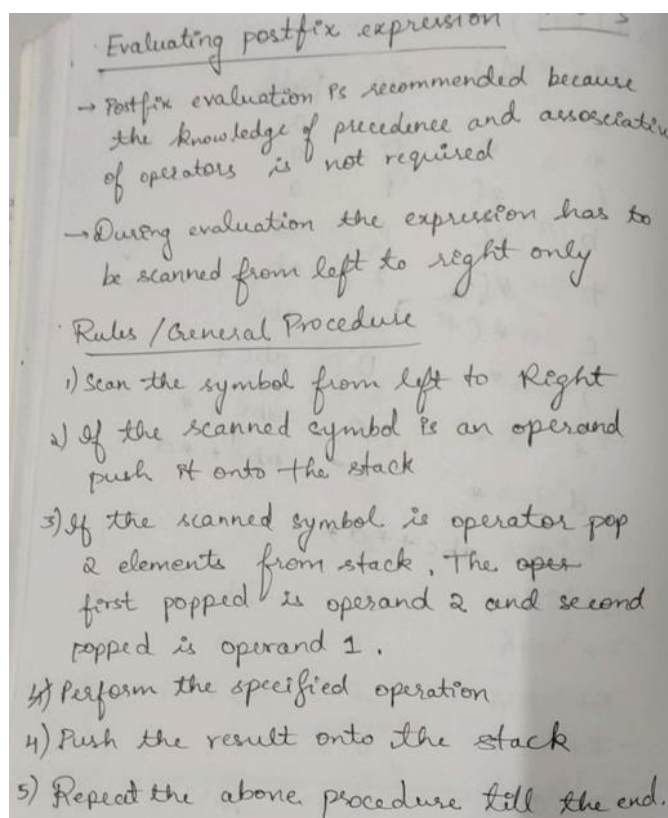 Evaluating postfix expression
→ Postfix evaluation is recommended because
the knowledge of precedence and assosciativ
of operators is not required
→ During evaluation the expression has to
be scanned from left to right only
Rules / General Procedure
1) Scan the symbol from left to Right
2) If the scanned symbol is an operand
push it onto the stack
3) If the scanned symbol is operator pop
2 elements from stack. The oper
first popped is operand 2 and second
popped is operand 1.
4) Perform the specified operation
4) Push the result onto the stack
5) Repeat the above procedure till the end.